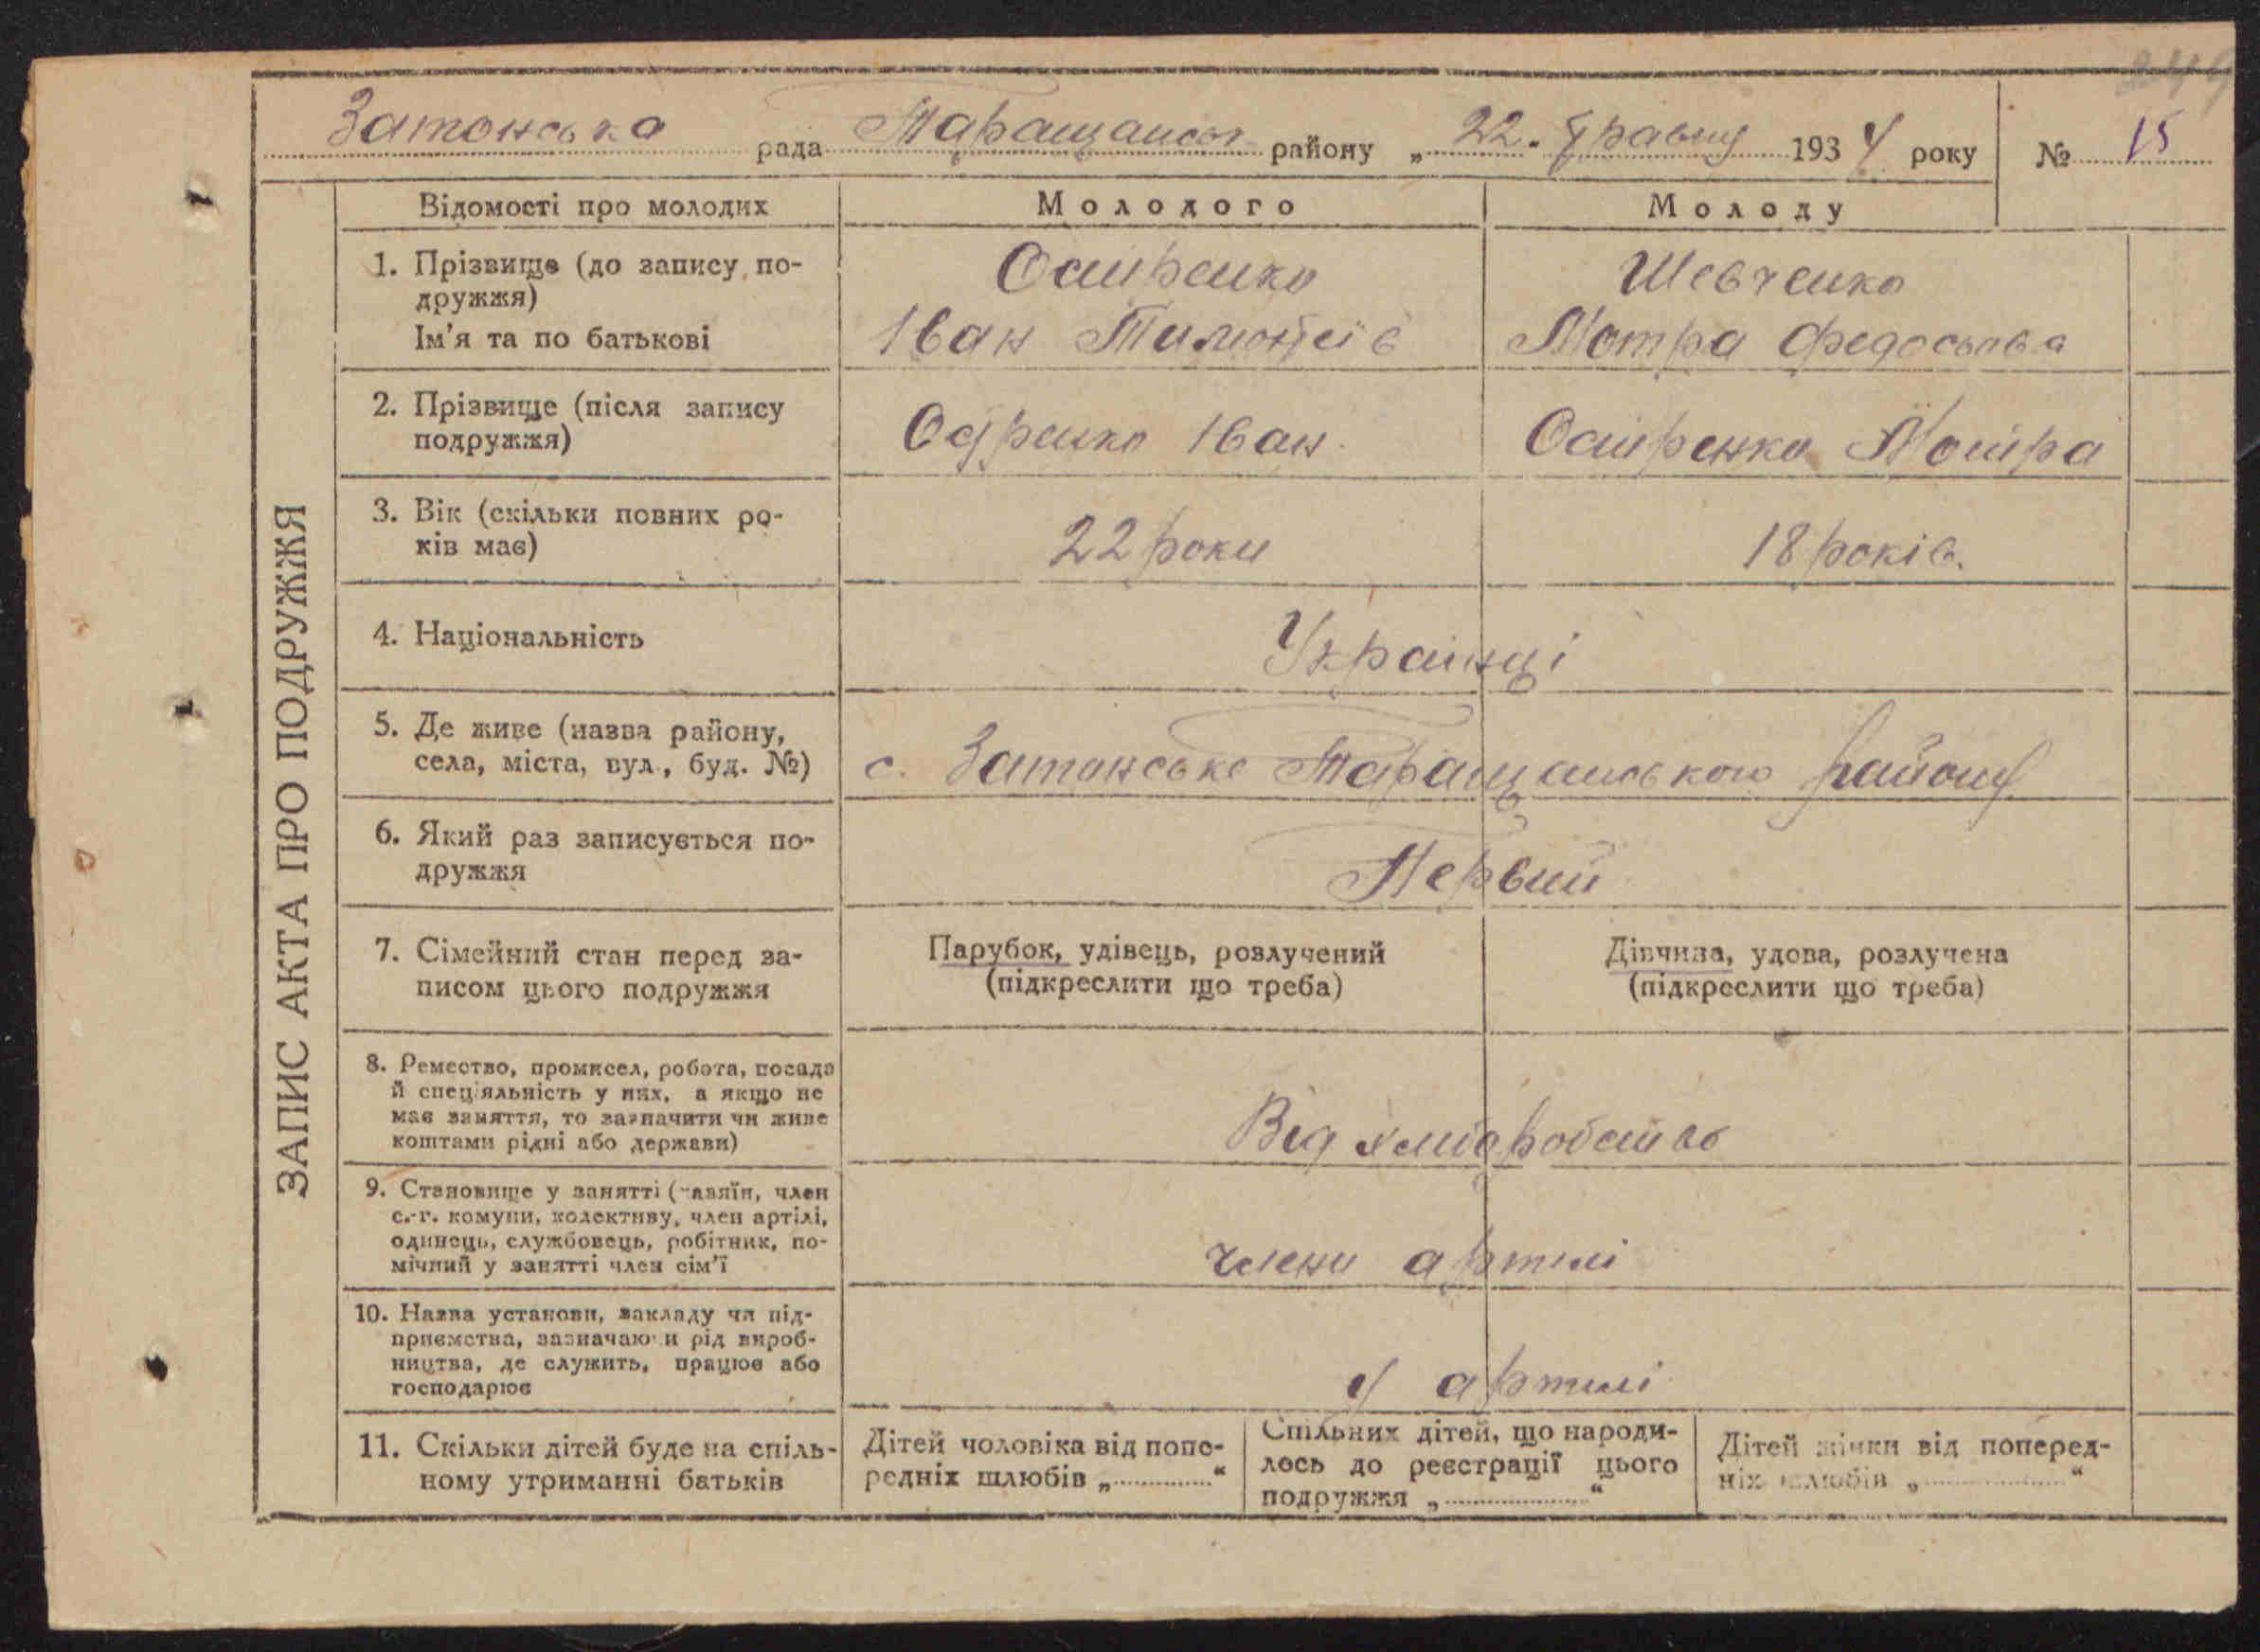 Затонська рада Таращанськ району „22“ Травня 1934 року № 15
ЗАПИС АКТА ПРО ПОДРУЖЖЯ
Відомості про молодих Молодого Молоду
1. Прізвище (до запису по-
дружжя)
Ім'я та по батькові
Шевченко
Іван Тимофіїв
Мотра Федосьова
2. Прізвище (після запису
подружжя)
Іван
Мотра
3. Вік (скільки повних ро-
ків має)
22 роки
18 років.
4. Національність
Українці
5. Де живе (назва району,
села, міста, вул., буд. №)
с. Затонське Таращанського району
6. Який раз записується по-
дружжя
Первий
7. Сімейний стан перед за-
писом цього подружжя
Парубок, удівець, розлучений
(підкреслити що треба)
Дівчина, удова, розлучена
(підкреслити що треба)
8. Ремество, промисел, робота, посада
й спеціяльність у них, а якщо не
має заняття, то зазначити чи живе
коштами рідні або держави)
Від хліборобства
9. Становище у занятті (хазяїн, член
с.-г. комуни, колективу, член артілі,
одинець, службовець, робітник, по-
мічний у занятті член сім'ї
члени артилі
10. Назва установи, закладу чи під-
приємства, зазначаючи рід вироб-
ництва, де служить, працює або
господарює
у артилі
11. Скільки дітей буде на спіль-
ному утриманні батьків
Дітей чоловіка від попе-
редніх шлюбів „ “
Спільних дітей, що народи-
лось до реєстрації цього
подружжя „ “
Дітей жінки від поперед-
ніх шлюбів „ “